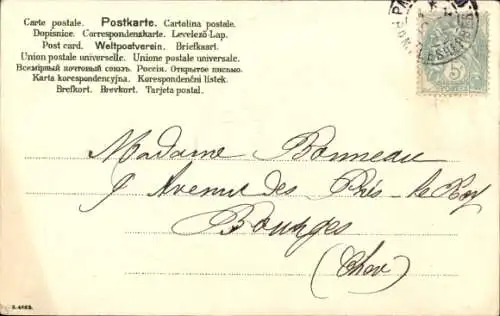 Carte postale. Postkarte. Cartolina postale.
Dopisnice. Correspondenzkarte. Levelező-Lap.
Post card. Weltpostverein. Briefkaart.
Union postale universelle. Unione postale universale.
Всемірный почтовый союзъ. Россія. Открытое письмо.
Karta korespondencyjna. Korespondenční lístek.
Brefkort. Brevkort. Tarjeta postal.
Madame Bonneau
9 Avenue des Prés-le-Roy
Bourges
(Cher)